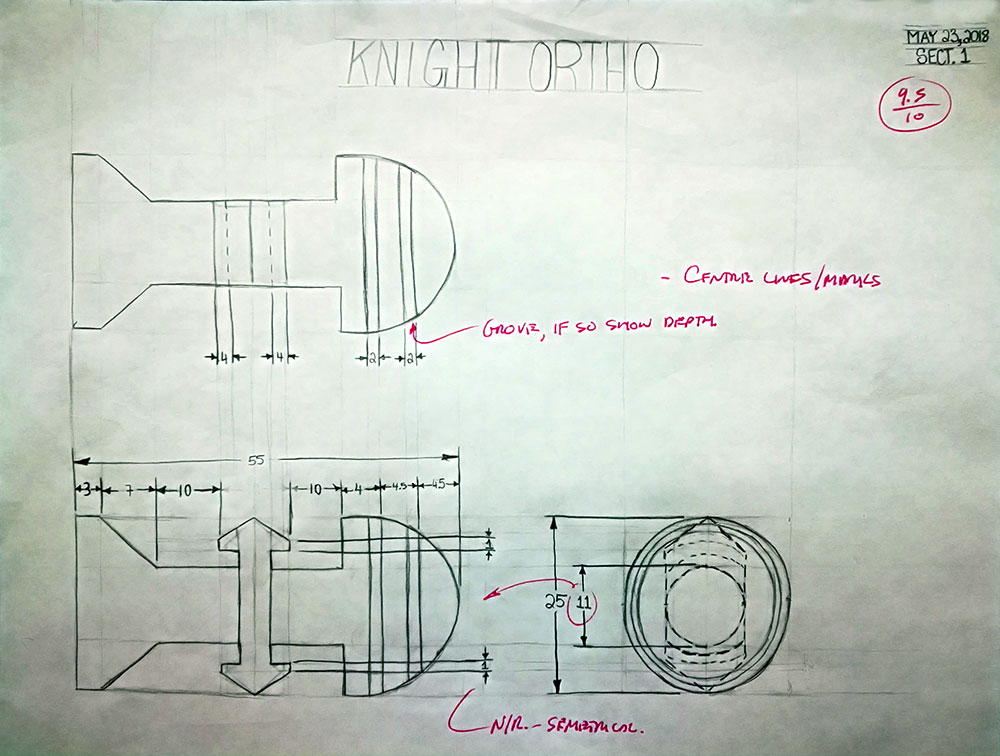 KNIGHT ORTHO
MAY 23, 2018
SECT. 1
9.5
10
- CENTRE LINES/MARKS
GROVE, IF SO SHOW DEPTH.
4 4 2 2
55
3 7 10 10 4 4.5 4.5
1
25 11
1
N/R. - SEMETRICAL.